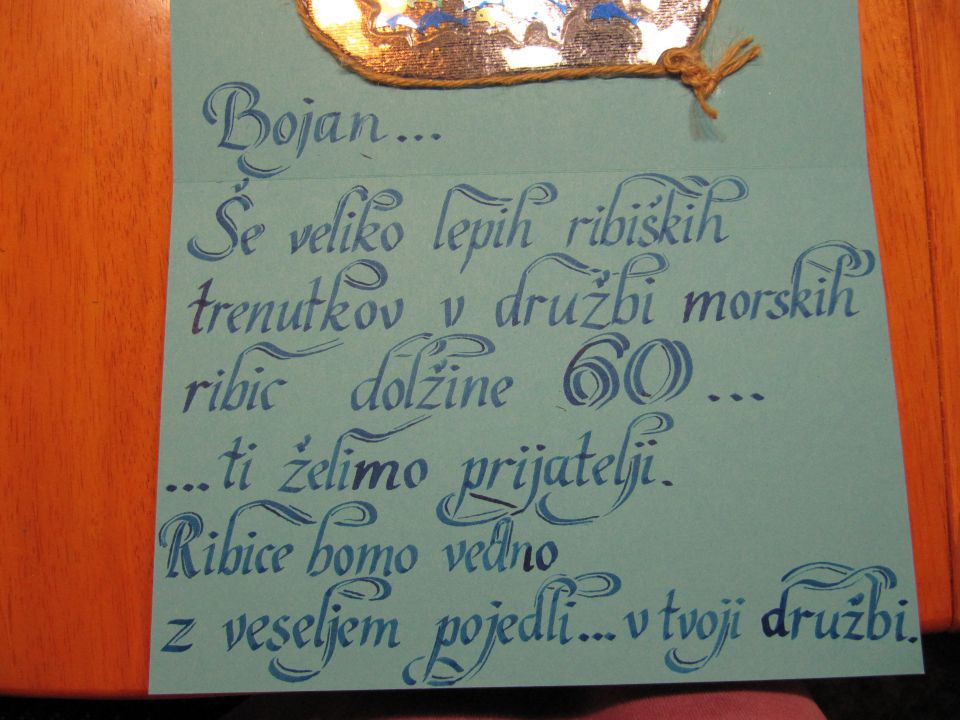 Bojan...
Še veliko lepih ribiških
trenutkov v družbi morskih
ribic dolžine 60...
...ti želimo prijatelji.
Ribice bomo vedno
z veseljem pojedli... v tvoji družbi.